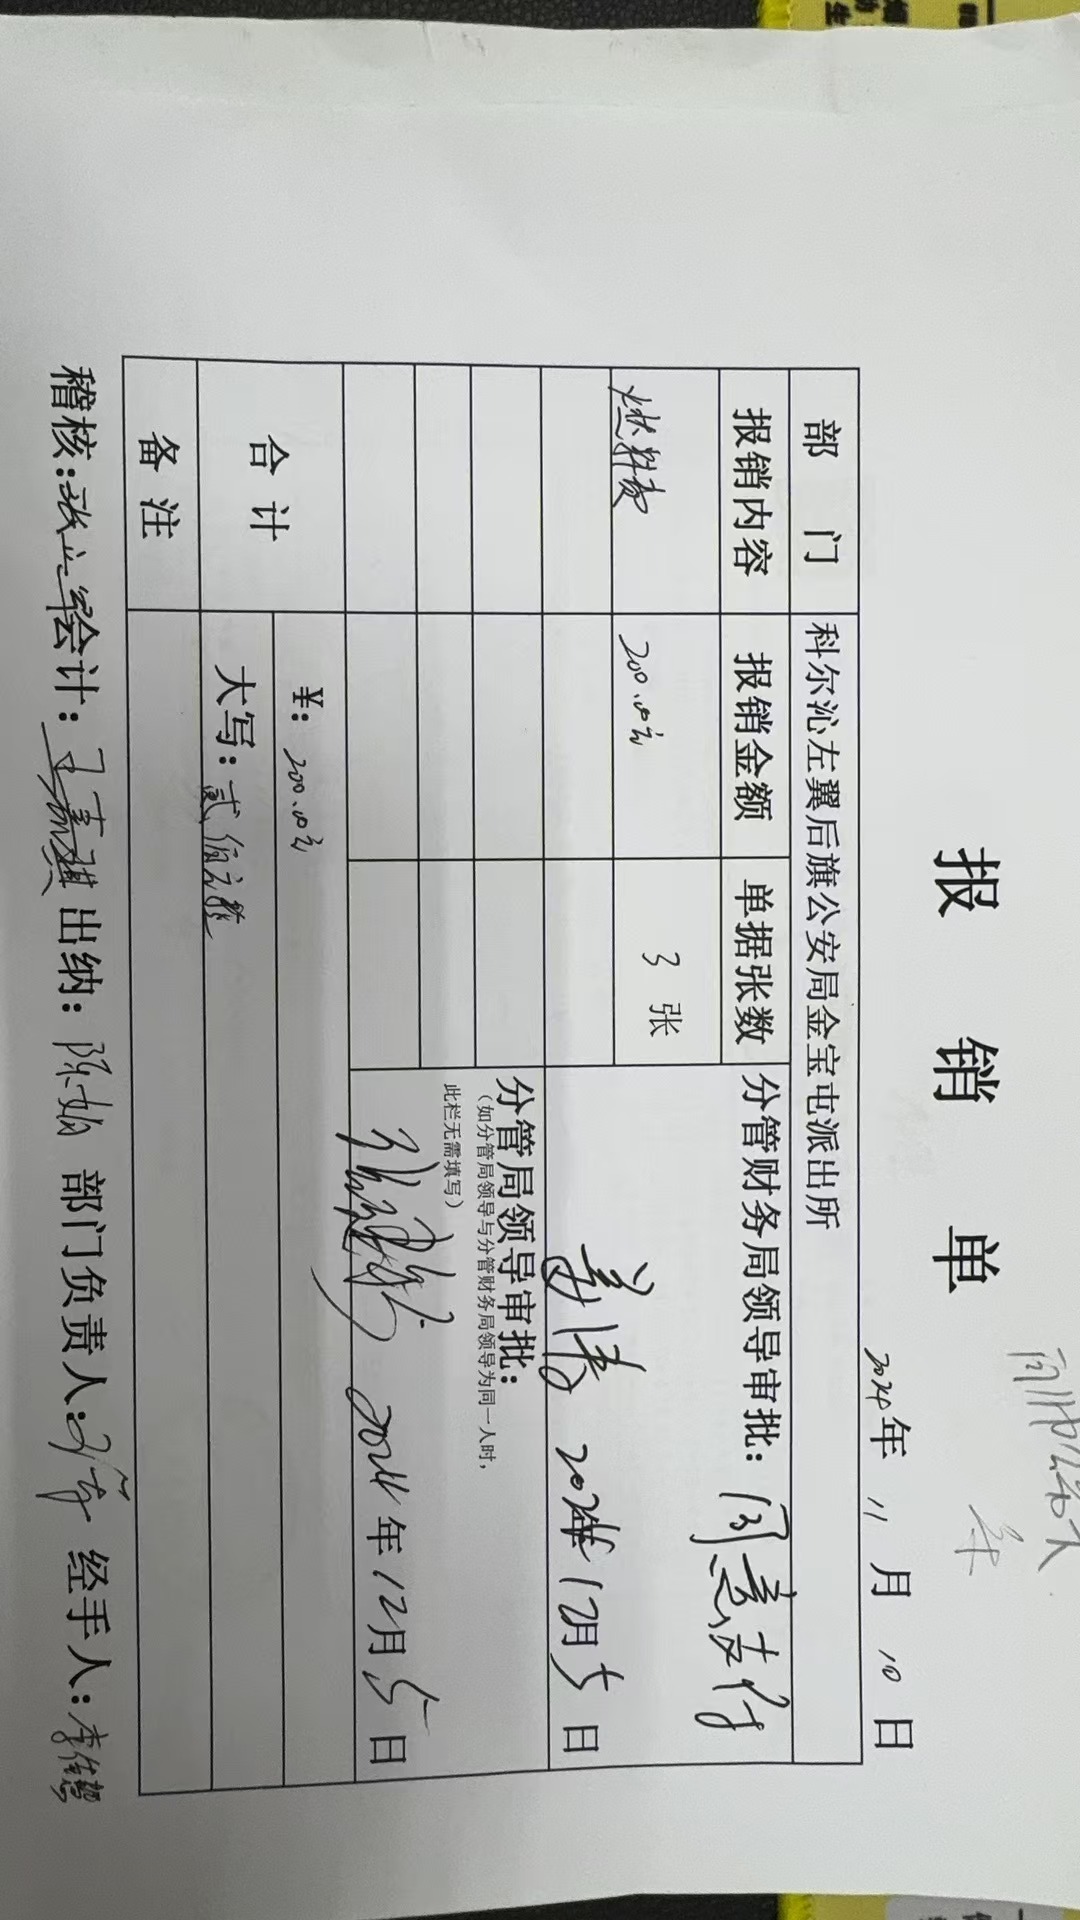 报销单
2024年 11月 10日
部门 科尔沁左翼后旗公安局金宝屯派出所
报销内容 报销金额 单据张数 分管财务局领导审批: 同意支付
燃料费 200.00元 3张
2024年12月5日
分管局领导审批:
(如分管局领导与分管财务局领导为同一人时,
此栏无需填写)
2024年12月5日
合计 ¥: 200.00元
大写: 贰佰元整
备注
稽核: 会计: 出纳: 陈娟 部门负责人: 经手人: 李